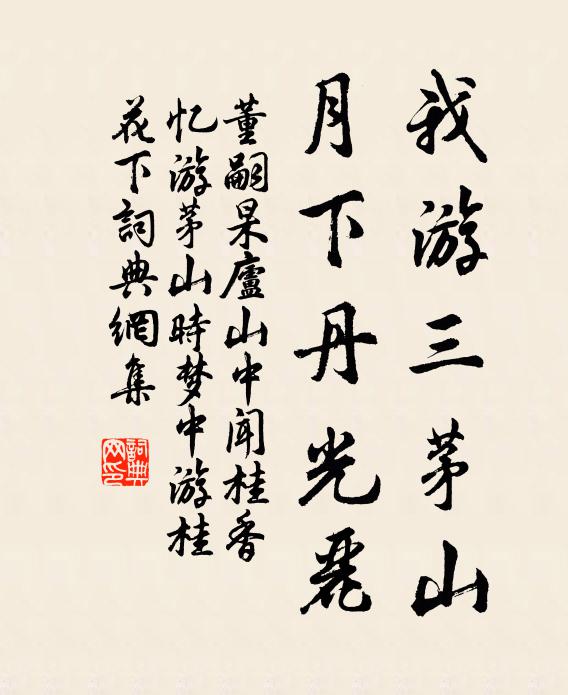 我游三茅山
月下丹光麗
董嗣杲廬山中闻桂香
忆游茅山時梦中游桂
花下詞典網集
詞典網印